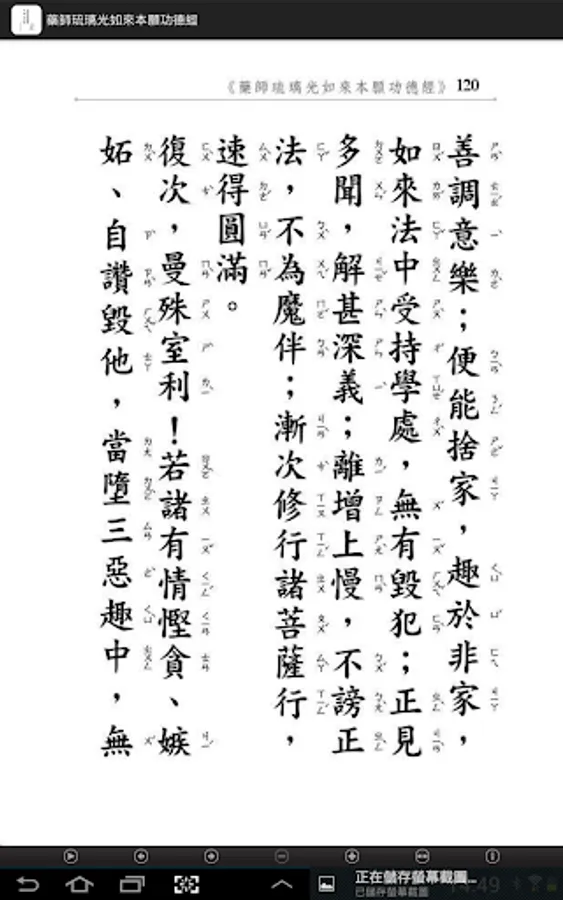 藥師琉璃光如來本願功德經
《藥師琉璃光如來本願功德經》 120
善調意樂；便能捨家，趣於非家，
如來法中受持學處，無有毀犯；正見
多聞，解甚深義；離增上慢，不謗正
法，不為魔伴；漸次修行諸菩薩行，
速得圓滿。
復次，曼殊室利！若諸有情慳貪、嫉
妬、自讚毀他，當墮三惡趣中，無
正在儲存螢幕截圖...
已儲存螢幕截圖
14:49